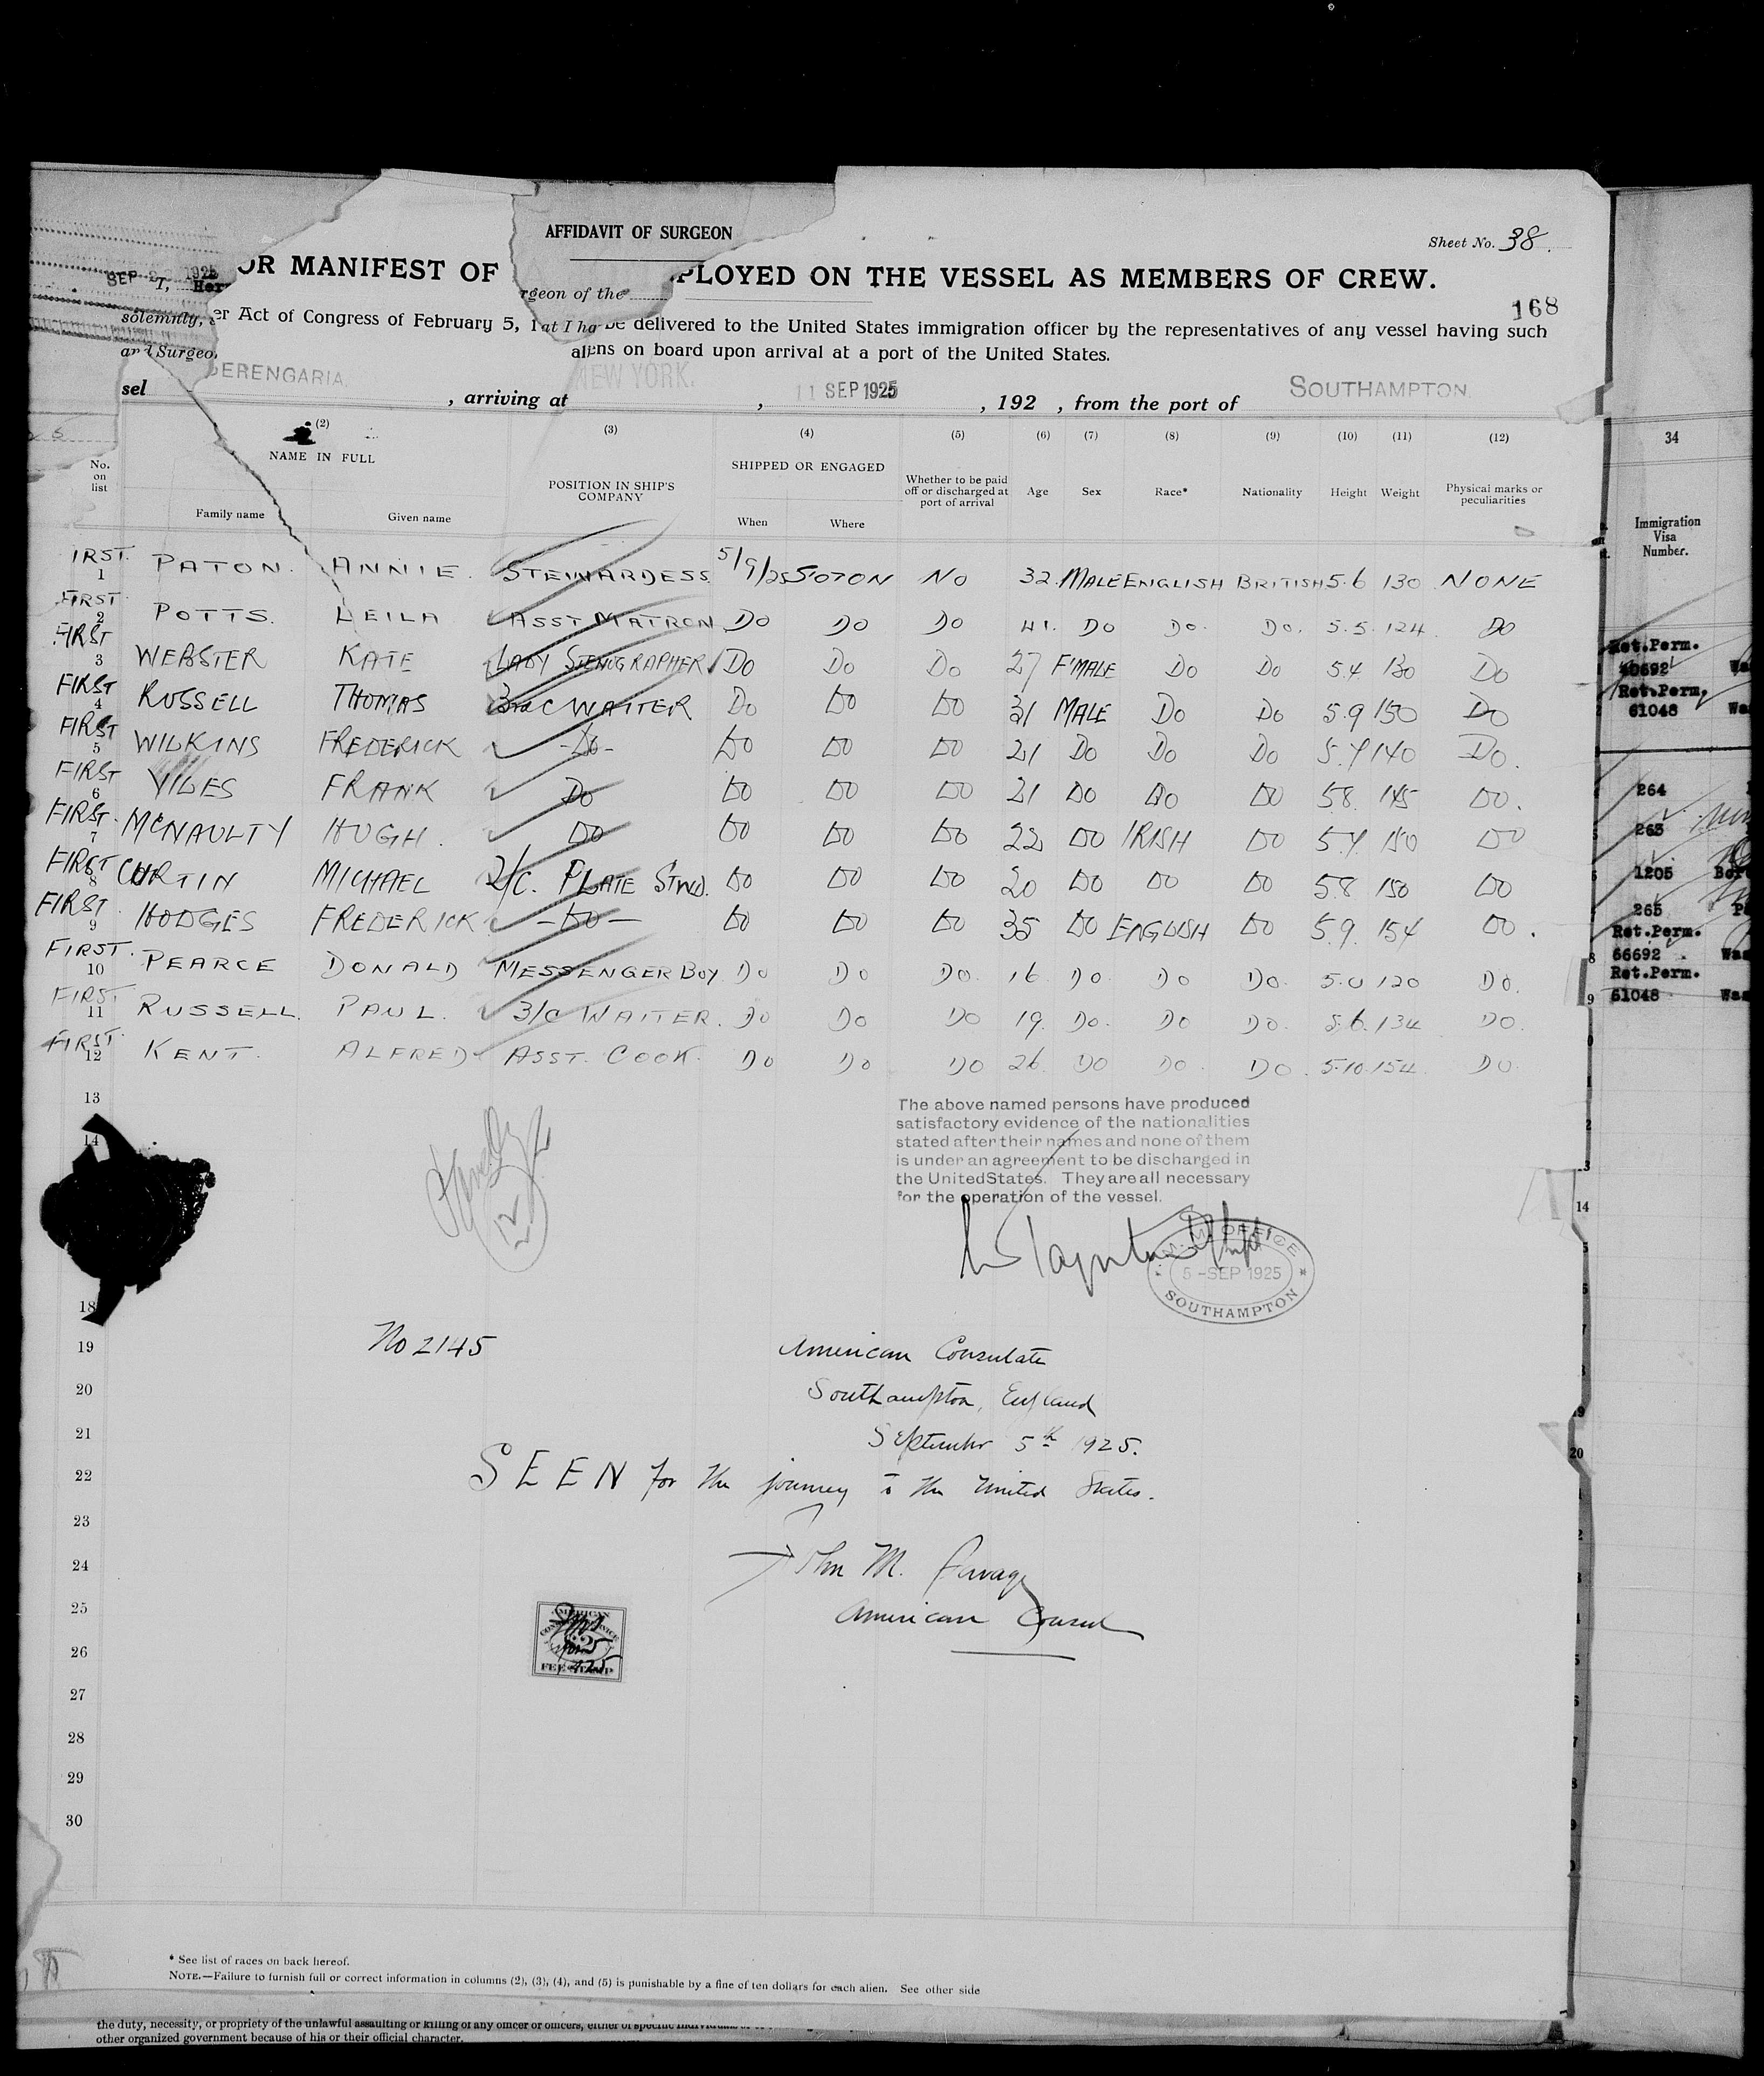 AFFIDAVIT OF SURGEON
Sheet No. 38.
OR MANIFEST OF PLOYED ON THE VESSEL AS MEMBERS OF CREW.
SEP 1925
I, Her
rgeon of the
168
solemnly, er Act of Congress of February 5, 1 at I ha be delivered to the United States immigration officer by the representatives of any vessel having such
and Surgeo aliens on board upon arrival at a port of the United States.
sel BERENGARIA. , arriving at NEW YORK. , 11 SEP 1925 , 192 , from the port of SOUTHAMPTON.
(2) (3) (4) (5) (6) (7) (8) (9) (10) (11) (12)
No. on list NAME IN FULL Family name Given name POSITION IN SHIP'S COMPANY SHIPPED OR ENGAGED When Where Whether to be paid off or discharged at port of arrival Age Sex Race* Nationality Height Weight Physical marks or peculiarities
IRST. 1 PATON. ANNIE. STEWARDESS 5/9/25 SOTON NO 32. MALE ENGLISH BRITISH 5.6 130 NONE
FIRST 2 POTTS. LEILA ASST MATRON DO DO DO 41. DO DO. DO. 5.5. 124. DO
FIRST 3 WEBSTER KATE LADY STENOGRAPHER DO DO DO 27 F'MALE DO DO 5.4 130 DO
FIRST 4 RUSSELL THOMAS 3rd C WAITER DO DO DO 31 MALE DO DO 5.9 150 DO
FIRST 5 WILKINS FREDERICK -DO- DO DO DO 21 DO DO DO 5.7 140 DO.
FIRST 6 VILES FRANK DO DO DO DO 21 DO DO DO 58. 145 DO.
FIRST. 7 MCNAULTY HUGH. DO DO DO DO 22 DO IRISH DO 5.7. 150 DO
FIRST 8 CURTIN MICHAEL 2/C. PLATE STWD. DO DO DO 20 DO DO DO 58 150 DO
FIRST. 9 HODGES FREDERICK -DO- DO DO DO 35 DO ENGLISH DO 5.9. 154 DO.
FIRST. 10 PEARCE DONALD MESSENGER BOY DO DO DO. 16 DO. DO DO. 5.0 120 DO.
FIRST 11 RUSSELL. PAUL. 3/C WAITER. DO DO DO 19. DO. DO DO. 5.6. 134 DO.
FIRST. 12 KENT. ALFRED ASST. COOK. DO DO DO 26. DO DO. DO. 5.10. 154. DO.
13
14
18
19
20
21
22
23
24
25
26
27
28
29
30
The above named persons have produced
satisfactory evidence of the nationalities
stated after their names and none of them
is under an agreement to be discharged in
the United States. They are all necessary
for the operation of the vessel.
M. M. OFFICE
5 - SEP 1925
SOUTHAMPTON
No 2145
American Consulate
Southampton, England
September 5th 1925.
SEEN for the journey to the United States.
John M. Savage
American Consul
AMERICAN
CONSULAR SERVICE
FEE STAMP
* See list of races on back hereof.
NOTE.—Failure to furnish full or correct information in columns (2), (3), (4), and (5) is punishable by a fine of ten dollars for each alien. See other side
the duty, necessity, or propriety of the unlawful assaulting or killing of any officer or officers, either of specific
other organized government because of his or their official character.
34
Immigration
Visa
Number.
Ret.Perm.
Ret.Perm.
61048
264
263
1205
265
Ret.Perm.
66692
Ret.Perm.
61048
14
20